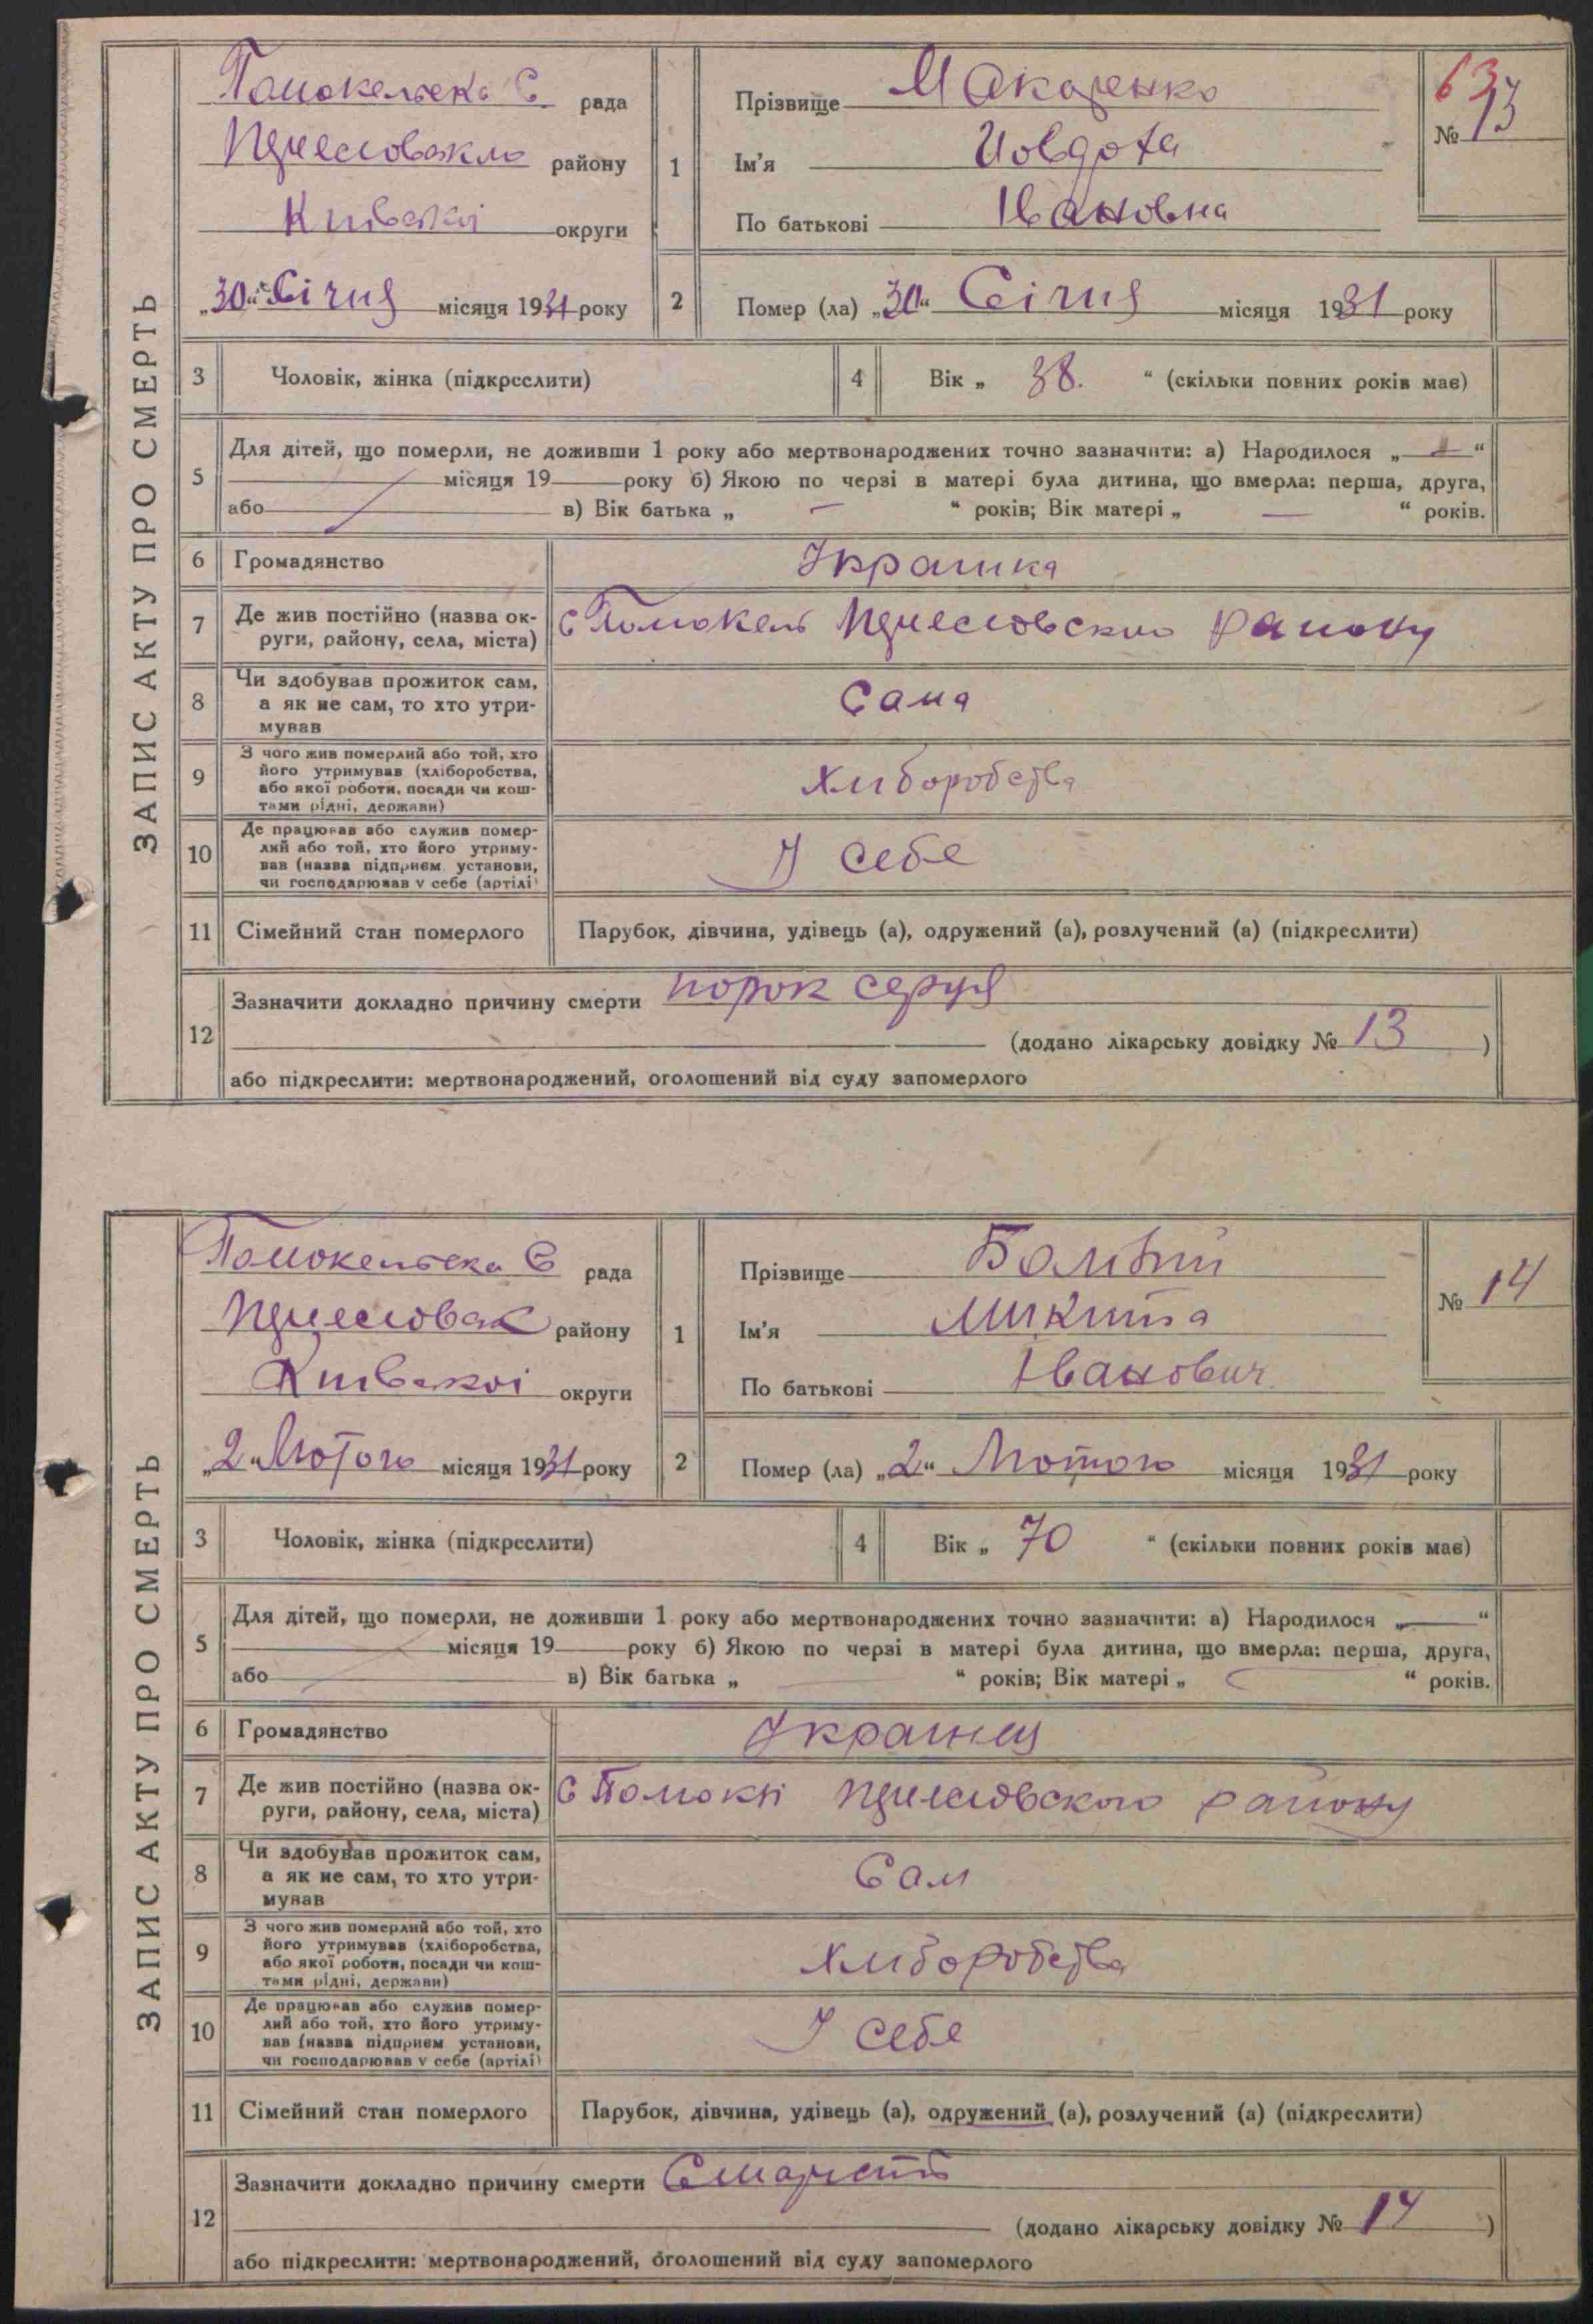 ЗАПИС АКТУ ПРО СМЕРТЬ
рада
району
округи
„30“ Січня місяця 1931 року
1
Прізвище Макаренко
Ім'я
По батькові Івановна
63
№ 13
2
Помер (ла) „30“ Січня місяця 1931 року
3
Чоловік, жінка (підкреслити)
4
Вік „ 38. “ (скільки повних років має)
5
Для дітей, що померли, не доживши 1 року або мертвонароджених точно зазначити: а) Народилося „ “
місяця 19 року б) Якою по черзі в матері була дитина, що вмерла: перша, друга,
або в) Вік батька „ – “ років; Вік матері „ — “ років.
6
Громадянство Украинка
7
Де жив постійно (назва ок-
руги, району, села, міста)
С району
8
Чи здобував прожиток сам,
а як не сам, то хто утри-
мував
Сама
9
З чого жив померлий або той, хто
його утримував (хліборобства,
або якої роботи, посади чи кош-
тами рідні, держави)
Хлиборобства
10
Де працював або служив помер-
лий або той, хто його утриму-
вав (назва підприєм. установи,
чи господарював у себе (артілі)
У себе
11
Сімейний стан померлого
Парубок, дівчина, удівець (а), одружений (а), розлучений (а) (підкреслити)
12
Зазначити докладно причину смерти порок серця
(додано лікарську довідку № 13 )
або підкреслити: мертвонароджений, оголошений від суду запомерлого
ЗАПИС АКТУ ПРО СМЕРТЬ
рада
району
округи
„2“ Лютого місяця 1931 року
1
Прізвище
Ім'я Микита
По батькові Іванович
№ 14
2
Помер (ла) „2“ Лютого місяця 1931 року
3
Чоловік, жінка (підкреслити)
4
Вік „ 70 “ (скільки повних років має)
5
Для дітей, що померли, не доживши 1 року або мертвонароджених точно зазначити: а) Народилося „ — “
місяця 19 року б) Якою по черзі в матері була дитина, що вмерла: перша, друга,
або в) Вік батька „ “ років; Вік матері „ “ років.
6
Громадянство Украинец
7
Де жив постійно (назва ок-
руги, району, села, міста)
С району
8
Чи здобував прожиток сам,
а як не сам, то хто утри-
мував
Сам
9
З чого жив померлий або той, хто
його утримував (хліборобства,
або якої роботи, посади чи кош-
тами рідні, держави)
Хлиборобства
10
Де працював або служив помер-
лий або той, хто його утриму-
вав (назва підприєм. установи,
чи господарював у себе (артілі)
У себе
11
Сімейний стан померлого
Парубок, дівчина, удівець (а), одружений (а), розлучений (а) (підкреслити)
12
Зазначити докладно причину смерти
(додано лікарську довідку № 14 )
або підкреслити: мертвонароджений, оголошений від суду запомерлого